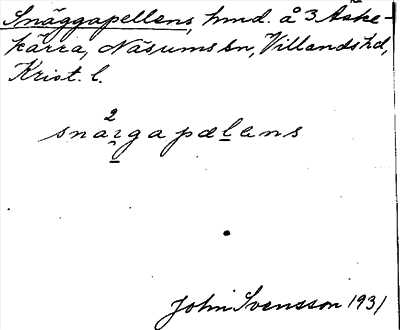 Snäggapellens, hmd. å 3 Äske-
kärra, Näsums sn, Villands hd,
Krist. l.
2
snärgapælens
John Svensson 1931